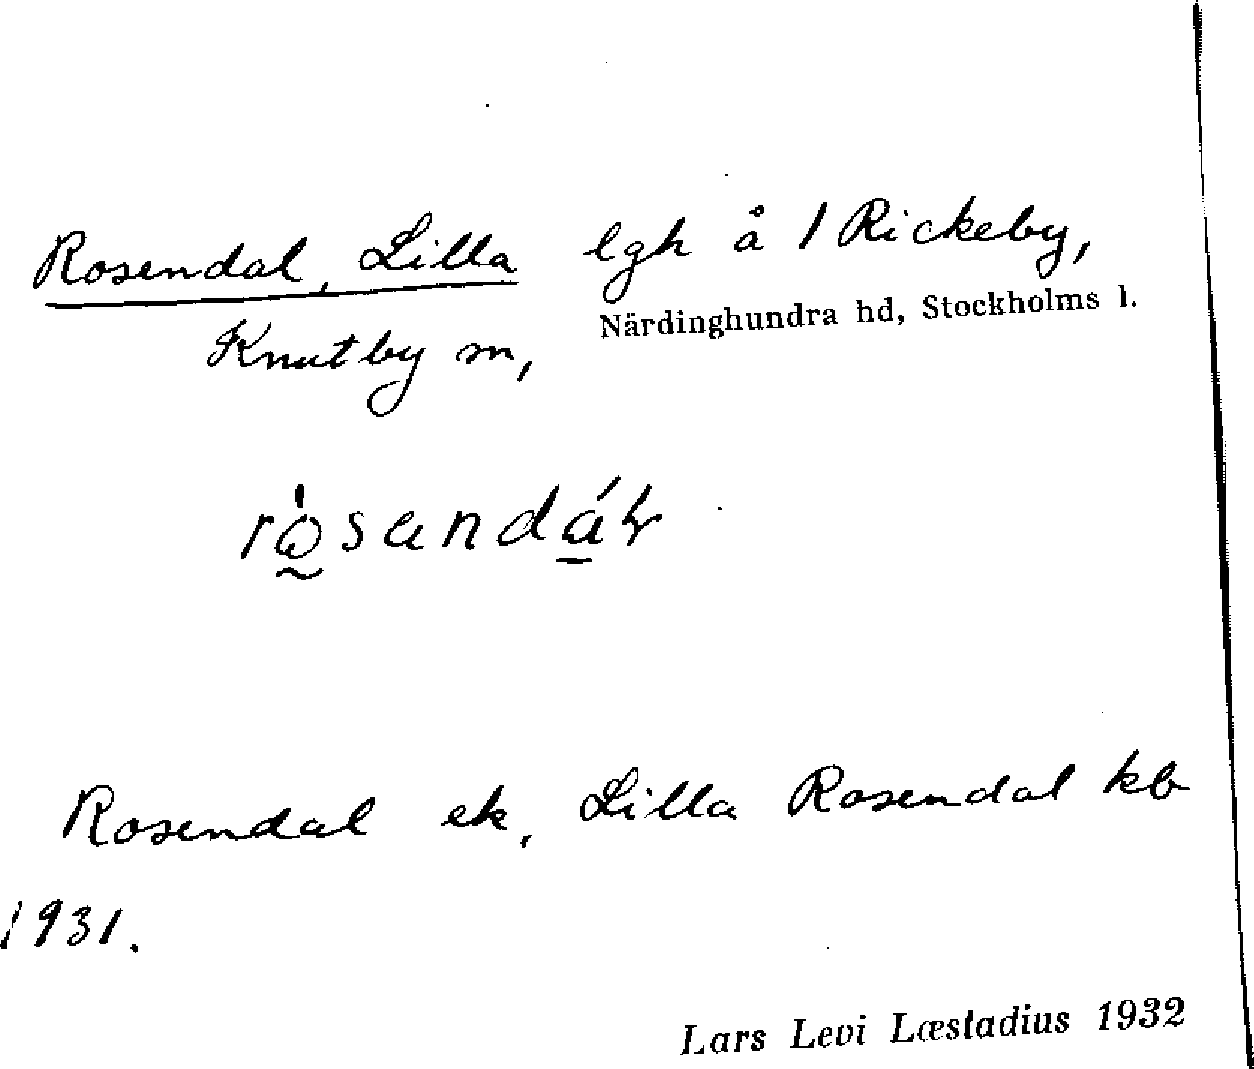 Rosendal, Lilla lgh å 1 Rickeby,
Knutby sn, Närdinghundra hd, Stockholms l.
Rosendal ek, Lilla Rosendal kb
1931.
Lars Levi Læstadius 1932